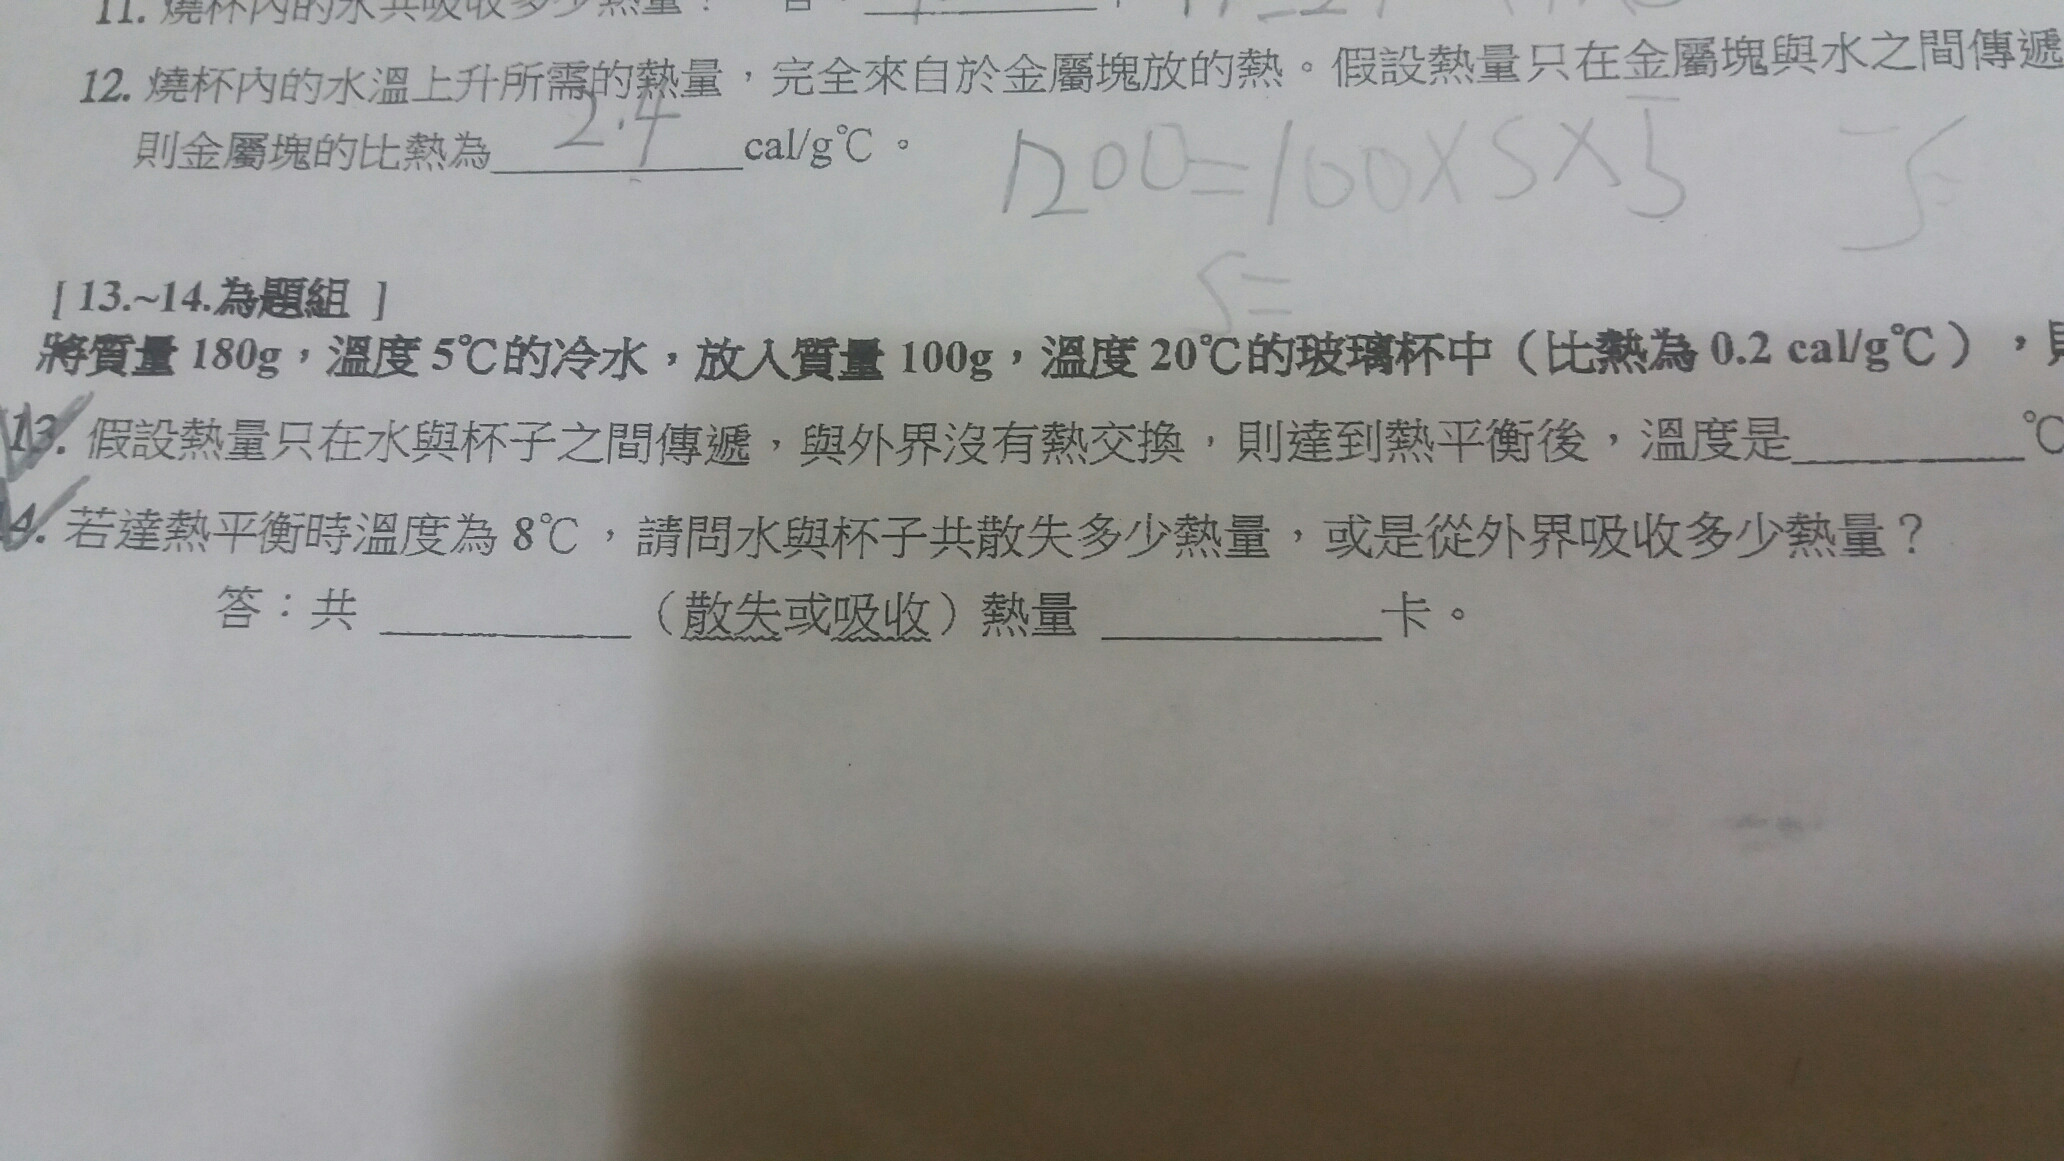 11. 燒杯內的水共吸收多少熱量？ 答：
12. 燒杯內的水溫上升所需的熱量，完全來自於金屬塊放的熱。假設熱量只在金屬塊與水之間傳遞
則金屬塊的比熱為 2.4 cal/g℃。
1200=100×5×
S=
[ 13.~14.為題組 ]
將質量 180g，溫度 5℃的冷水，放入質量 100g，溫度 20℃的玻璃杯中（比熱為 0.2 cal/g℃），則
13. 假設熱量只在水與杯子之間傳遞，與外界沒有熱交換，則達到熱平衡後，溫度是__________℃
4. 若達熱平衡時溫度為 8℃，請問水與杯子共散失多少熱量，或是從外界吸收多少熱量？
答：共 __________（散失或吸收）熱量 __________卡。